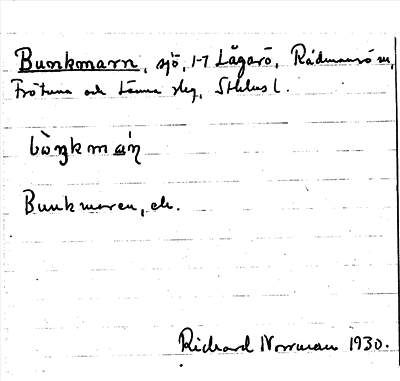 Bunkmarn, sjö, 1-7 Lågarö, Rådmansö sn,
Frötuna och Länna slg, Sthlms l.
bùŋkmaŋ́
Bunkmaren, ek.
Richard Norrman 1930.